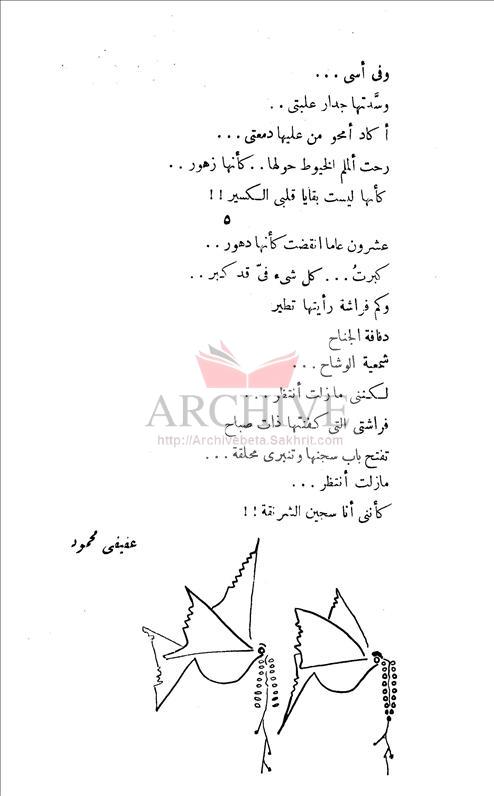 وفى أسى ...
وسَّدتها جدار علبتى ..
أكاد أمحو من عليها دمعتى ...
رحت ألملم الخيوط حولها .. كأنها زهور ..
كأنها ليست بقايا قلبى الكسير !!
٥
عشرون عاما انقضت كأنها دهور ..
كبرتُ ... كل شىء فىّ قد كبر ..
وكم فراشة رأيتها تطير
دفافة الجناح
شمعية الوشاح ...
لكننى مازلت أنتظر ...
فراشتى التى كفنتها ذات صباح
تفتح باب سجنها وتنبرى محلقة ...
مازلت أنتظر ...
كأننى أنا سجين الشرنقة !!
عفيفى محمود
ARCHIVE
http://Archivebeta.Sakhrit.com